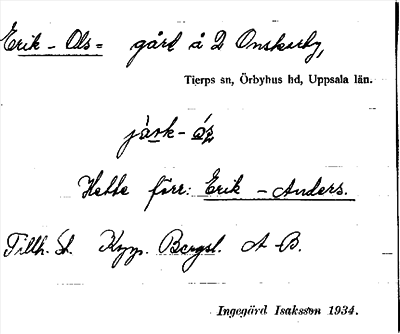 Erik - Ols = gård å 2 Onskarby,
Tierps sn, Örbyhus hd, Uppsala län.
Hette förr: Erik - Anders.
Tillh. St. Kopp. Bergsl. A-B.
Ingegärd Isaksson 1934.